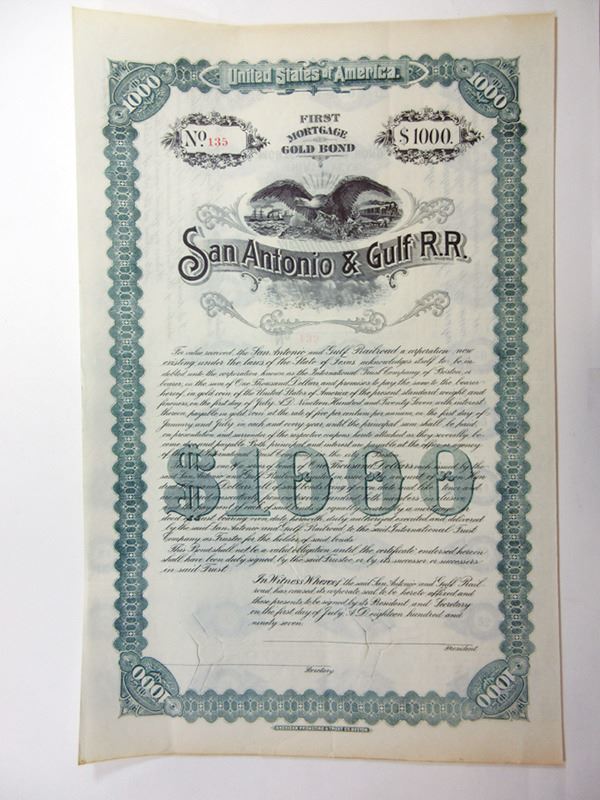 United States of America.
1000
1000
No. 135
FIRST
MORTGAGE
GOLD BOND
$1000.
San Antonio & Gulf R.R.
135
For value received the San Antonio and Gulf Railroad a corporation now
existing under the laws of the State of Texas acknowledges itself to be in-
debted unto the corporation known as the International Trust Company of Boston, or
bearer, in the sum of One Thousand Dollars and promises to pay the same to the bearer
hereof, in gold coin of the United States of America of the present standard weight and
fineness, on the first day of July A.D. Nineteen Hundred and Twenty Seven with interest
thereon payable in gold coin at the rate of five per centum per annum, on the first day of
January and July in each and every year, until the principal sum shall be paid,
on presentation and surrender of the respective coupons hereto attached as they severally be-
come due and payable. Both principal and interest are payable at the office or agency
of the International Trust Company in the city of Boston.
of a series of bonds of One Thousand Dollars each issued by the
said San Antonio and Gulf Railroad
$1000
by the said San Antonio and Gulf Railroad to the said International Trust
Company as Trustee for the holders of said bonds.
This Bond shall not be a valid obligation until the certificate endorsed hereon
shall have been duly signed by the said Trustee, or by its successor or successors
in said Trust.
In Witness Whereof the said San Antonio and Gulf Rail-
road has caused its corporate seal to be hereto affixed and
these presents to be signed by its President and Secretary
on the first day of July, A.D. eighteen hundred and
ninety seven.
President
Secretary
1000
1000
AMERICAN PRINTING & TRUST CO. BOSTON